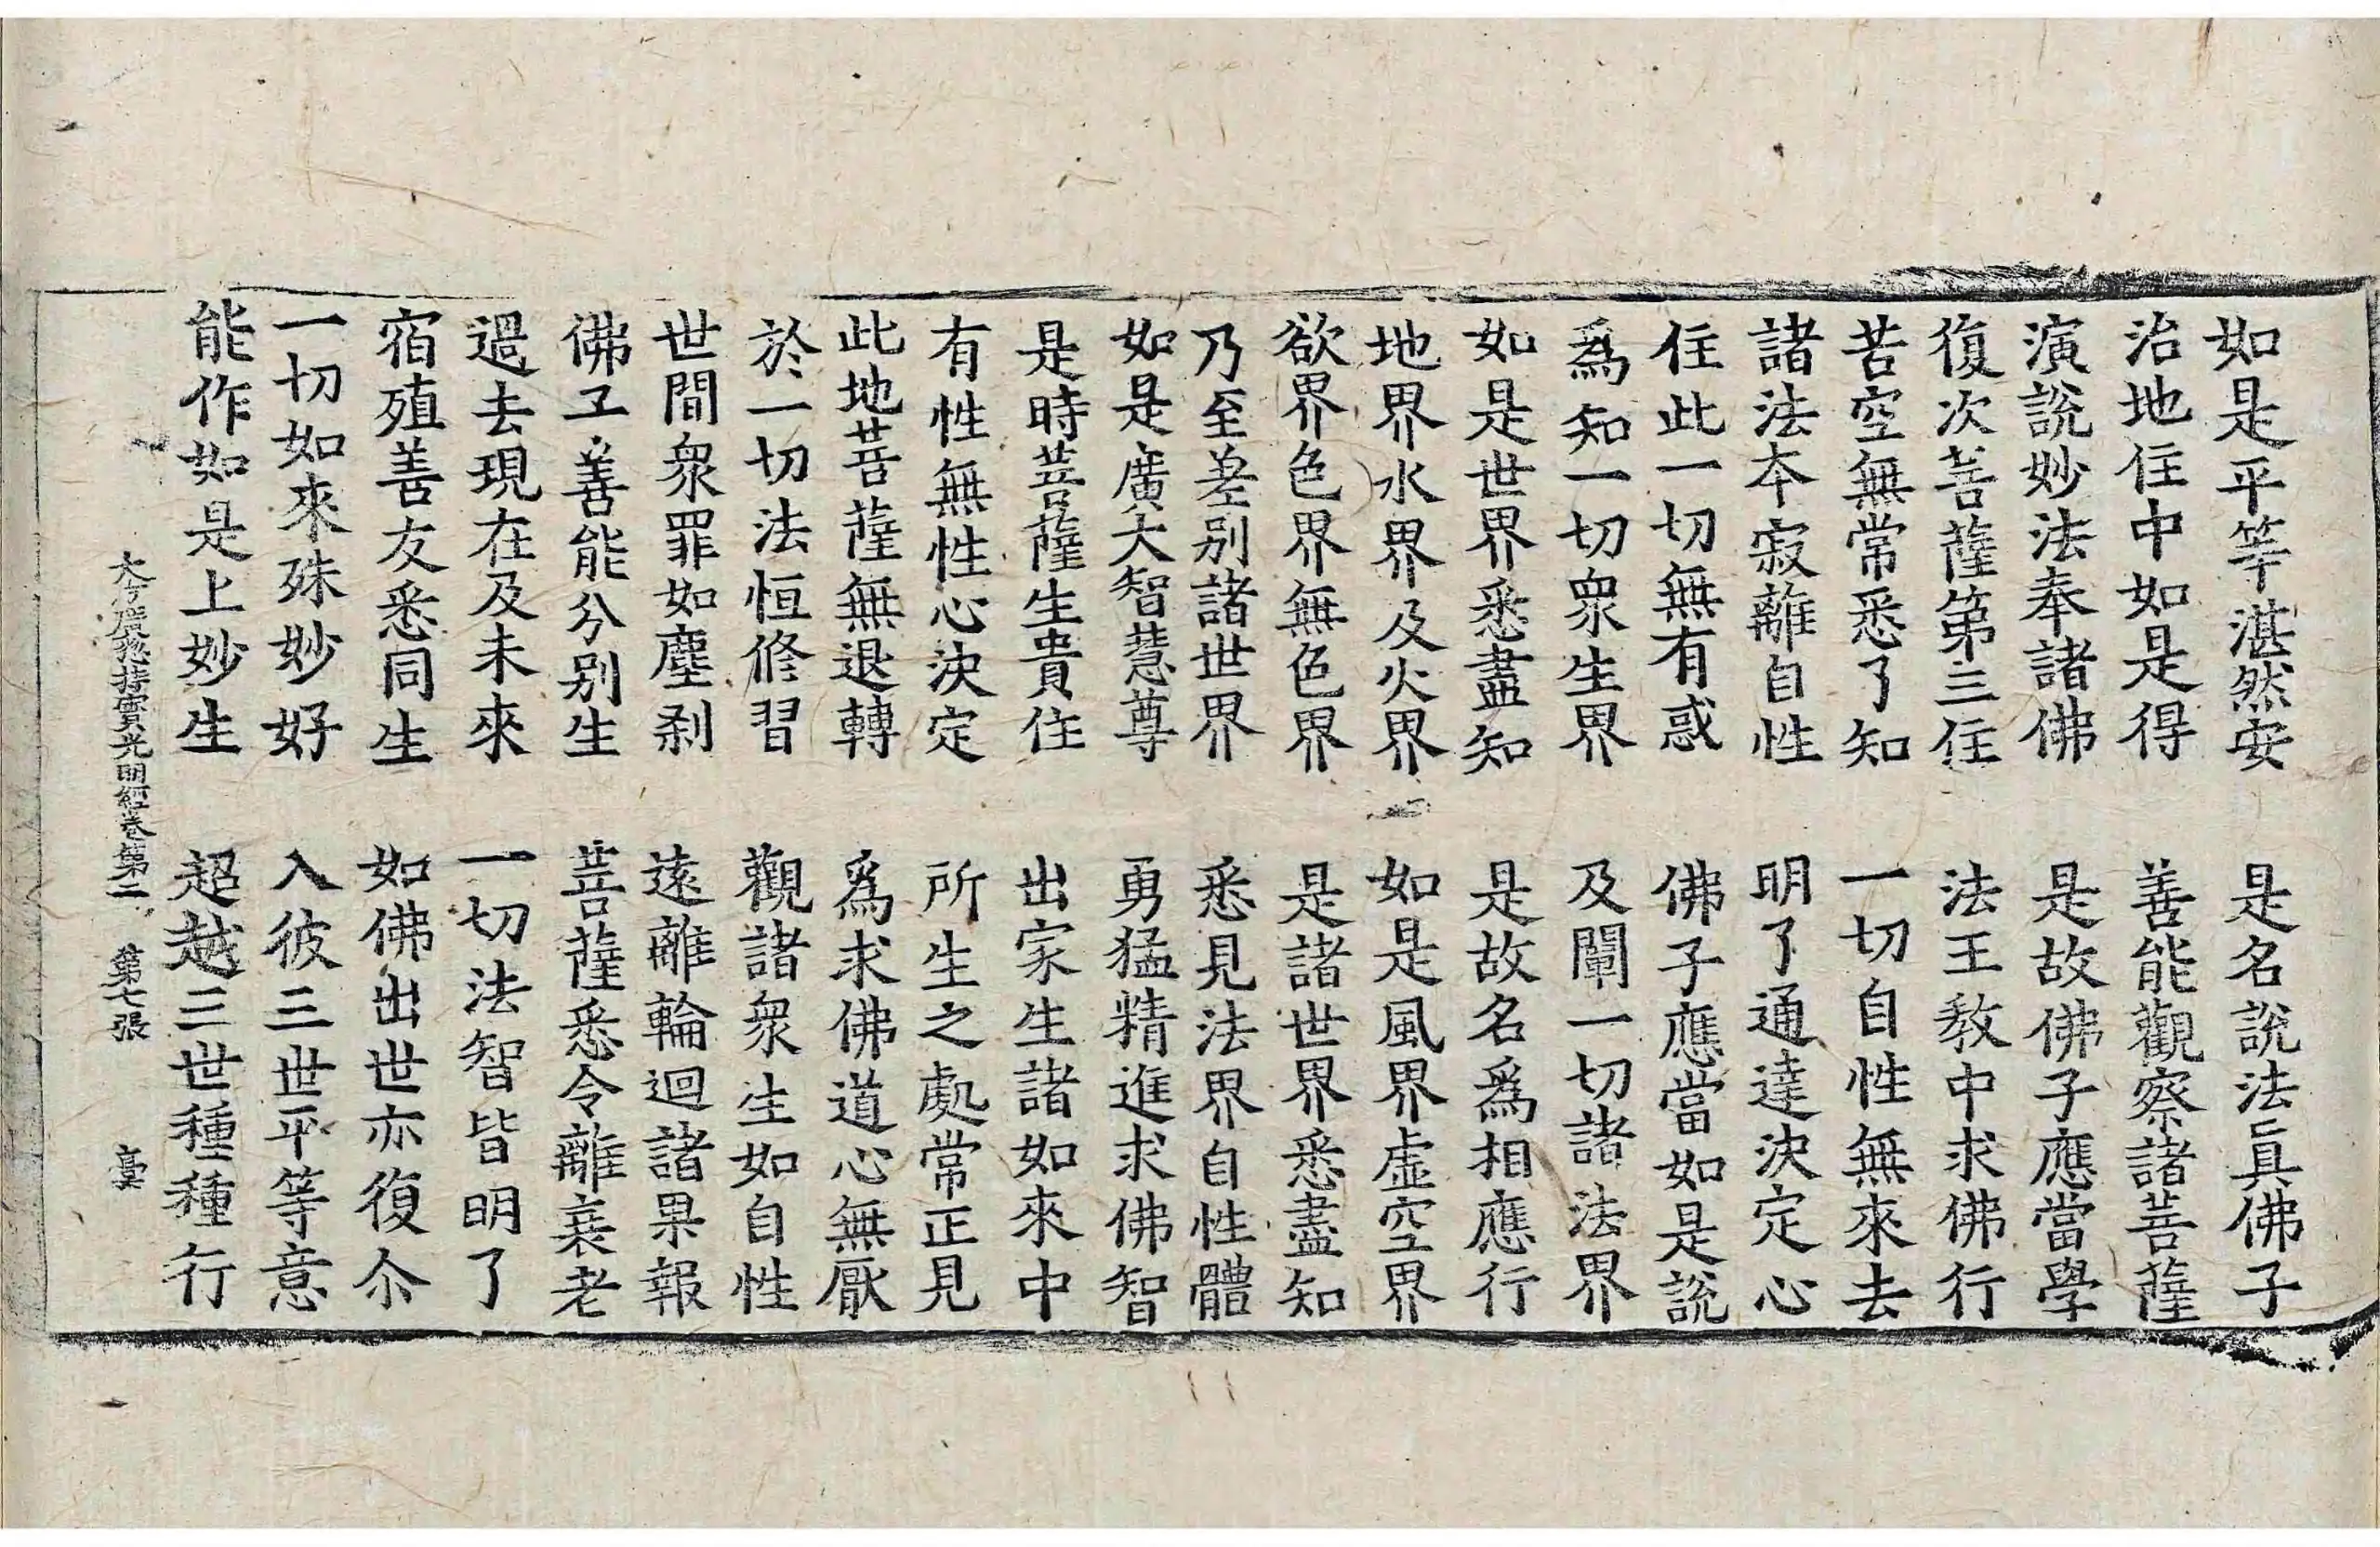 如是平等湛然安　是名說法真佛子
治地住中如是得　善能觀察諸菩薩
演說妙法奉諸佛　是故佛子應當學
復次菩薩第三住　法王教中求佛行
苦空無常悉了知　一切自性無來去
諸法本寂離自性　明了通達決定心
住此一切無有惑　佛子應當如是說
爲知一切衆生界　及闡一切諸法界
如是世界悉盡知　是故名爲相應行
地界水界及火界　如是風界虛空界
欲界色界無色界　是諸世界悉盡知
乃至差別諸世界　悉見法界自性體
如是廣大智慧尊　勇猛精進求佛智
是時菩薩生貴住　出家生諸如來中
有性無性心決定　所生之處常正見
此地菩薩無退轉　爲求佛道心無厭
於一切法恒修習　觀諸衆生如自性
世間衆罪如塵刹　遠離輪迴諸果報
佛工善能分別生　菩薩悉令離衰老
過去現在及未來　一切法智皆明了
宿殖善友悉同生　如佛出世亦復尒
一切如來殊妙好　入彼三世平等意
能作如是上妙生　超越三世種種行
大方廣揔持寶光明經卷第二　第七張